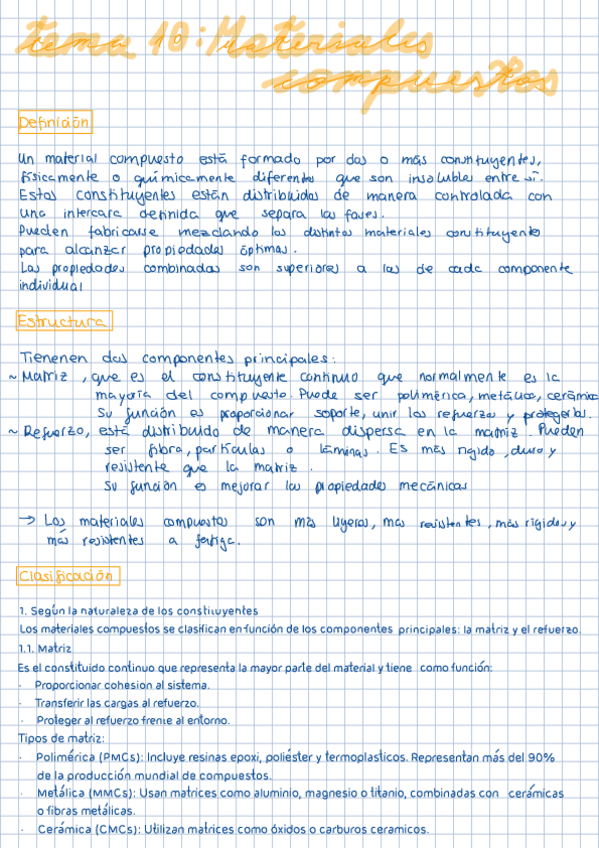 tema 10: Materiales
compuestos
Definición
Un material compuesto está formado por dos o más constituyentes,
físicamente o químicamente diferentes que son insolubles entre sí.
Estos constituyentes están distribuidos de manera controlada con
una intercara definida que separa las fases.
Pueden fabricarse mezclando los distintos materiales constituyente
para alcanzar propiedades óptimas.
Las propiedades combinadas son superiores a las de cada componente
individual
Estructura
Tienenen dos componentes principales:
~ Matriz, que es el constituyente continuo que normalmente es la
mayoría del compuesto. Puede ser polimérica, metálica, cerámica
Su función es proporcionar soporte, unir los refuerzos y protegerlos.
~ Refuerzo, está distribuido de manera dispersa en la matriz. Pueden
ser fibra, partículas o láminas. Es más rígido, duro y
resistente que la matriz.
Su función es mejorar las propiedades mecánicas
→ Los materiales compuestos son más ligeros, mas resistentes, más rígidos y
más resistentes a fatiga.
Clasificación
1. Según la naturaleza de los constituyentes
Los materiales compuestos se clasifican en función de los componentes principales: la matriz y el refuerzo.
1.1. Matriz
Es el constituido continuo que representa la mayor parte del material y tiene como función:
· Proporcionar cohesion al sistema.
· Transferir las cargas al refuerzo.
· Proteger al refuerzo frente al entorno.
Tipos de matriz:
· Polimérica (PMCs): Incluye resinas epoxi, poliéster y termoplasticos. Representan más del 90%
de la producción mundial de compuestos.
· Metálica (MMCs): Usan matrices como aluminio, magnesio o titanio, combinadas con cerámicas
o fibras metálicas.
· Cerámica (CMCs): Utilizan matrices como óxidos o carburos ceramicos.